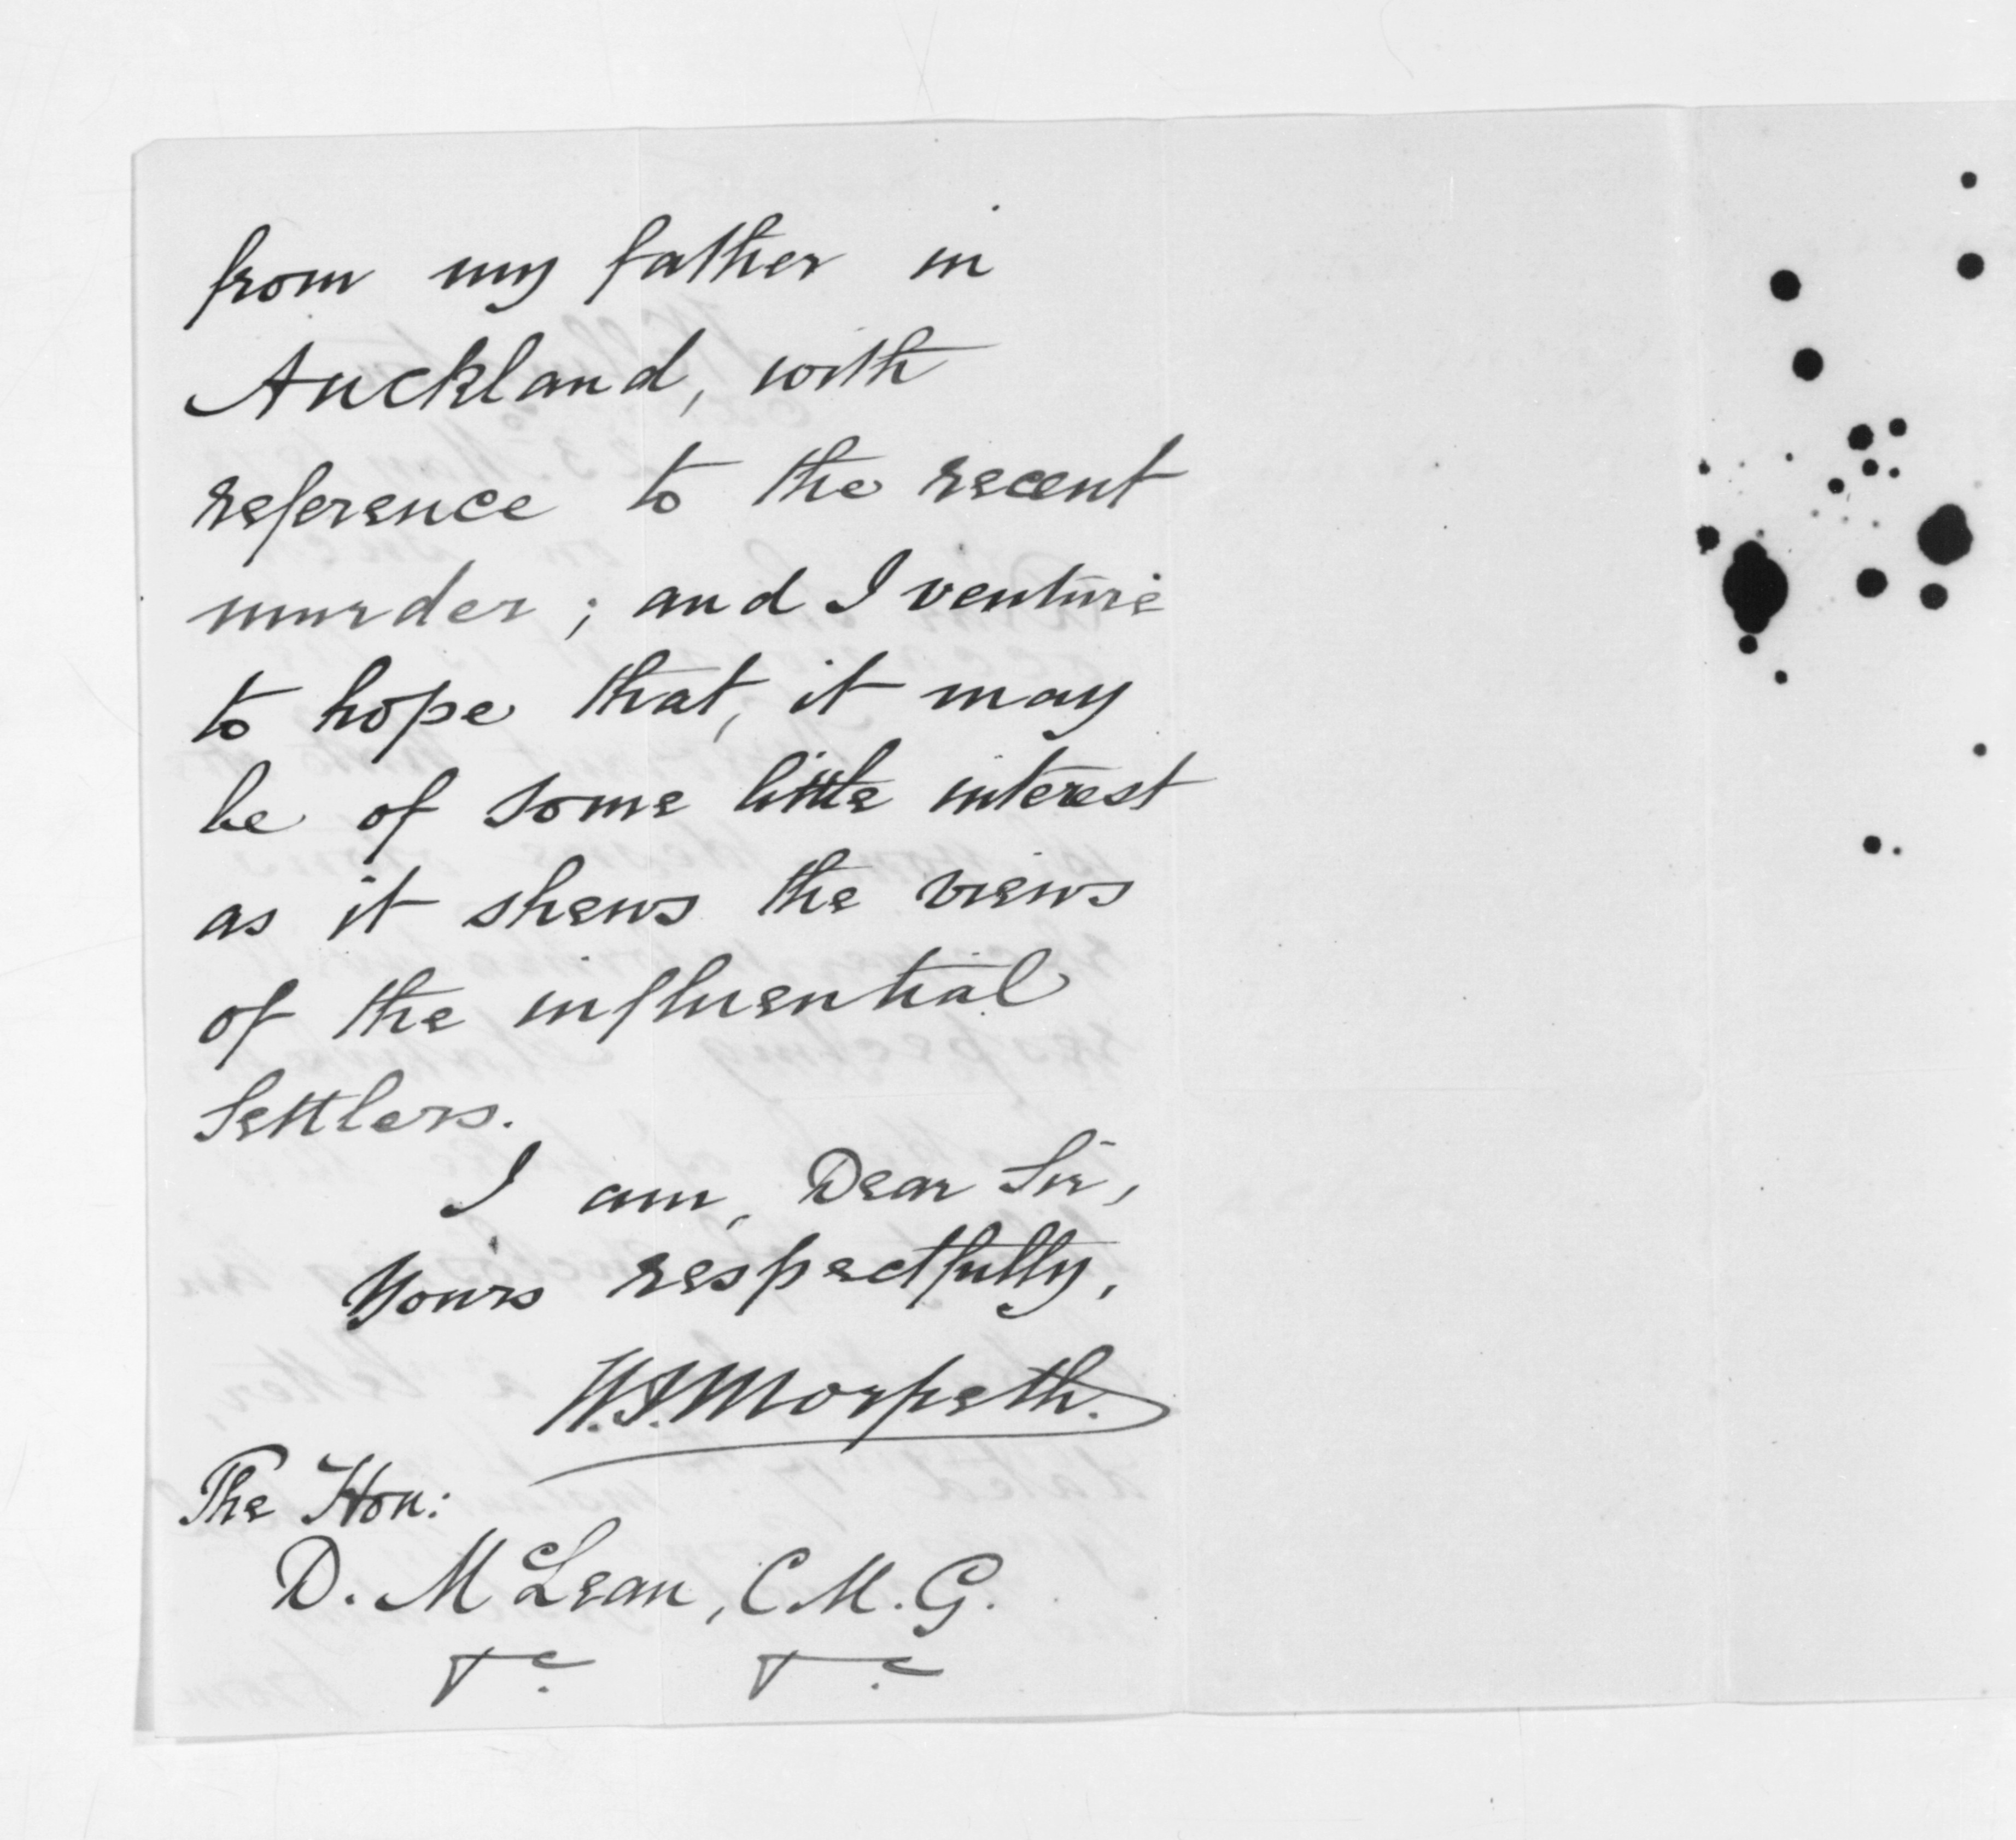 from my father in
Auckland, with
reference to the recent
murder; and I venture
to hope that, it may
be of some little interest
as it shews the views
of the influential
Settlers.
I am, Dear Sir,
Yours respectfully,
W.J. Morpeth.
The Hon:
D. McLean, C.M.G.
&c. &c.